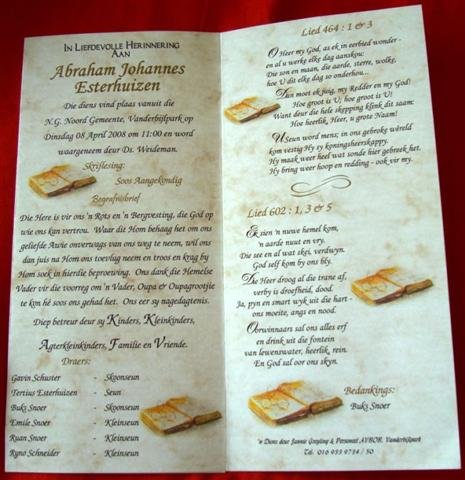 In Liefdevolle Herinnering
Aan
Abraham Johannes
Esterhuizen
Die diens vind plaas vanuit die
N.G. Noord Gemeente, Vanderbijlpark op
Dinsdag 08 April 2008 om 11:00 en word
waargeneem deur Ds. Weideman.
Skriflesing:
Soos Aangekondig
Begrafnisbrief
Die Here is vir ons 'n Rots en 'n Bergvesting, die God op
wie ons kan vertrou. Waar dit Hom behaag het om ons
geliefde Awie onverwags van ons weg te neem, wil ons
dan juis na Hom ons toevlug neem en troos en krag by
Hom soek in hierdie beproewing. Ons dank die Hemelse
Vader vir die voorreg om 'n Vader, Oupa & Oupagrootjie
te kon hê soos ons gehad het. Ons eer sy nagedagtenis.
Diep betreur deur sy Kinders, Kleinkinders,
Agterkleinkinders, Familie en Vriende.
Draers:
Gavin Schuster - Skoonseun
Tertius Esterhuizen - Seun
Buks Snoer - Skoonseun
Emile Snoer - Kleinseun
Ruan Snoer - Kleinseun
Ryno Schneider - Kleinseun
Lied 464 : 1 & 3
O Heer my God, as ek in eerbied wonder -
en al u werke elke dag aanskou:
Die son en maan, die aarde, sterre, wolke,
hoe U dit elke dag so onderhou...
Dan moet ek juig, my Redder en my God!
Hoe groot is U; hoe groot is U!
Want deur die hele skepping klink dit saam:
Hoe heerlik, Heer, u grote Naam!
U Seun word mens; in ons gebroke wêreld
kom vestig Hy sy koningsheerskappy.
Hy maak weer heel wat sonde hier gebreek het.
Hy bring weer hoop en redding - ook vir my.
Lied 602 : 1, 3 & 5
Ek sien 'n nuwe hemel kom,
'n aarde nuut en vry.
Die see en al wat skei, verdwyn.
God self kom by ons bly.
Die Heer droog al die trane af,
verby is droefheid, dood.
Ja, pyn en smart wyk uit die hart -
ons moeite, angs en nood.
Oorwinnaars sal ons alles erf
en drink uit die fontein
van lewenswater, heerlik, rein.
En God sal oor ons skyn.
Bedankings:
Buks Snoer
'n Diens deur Sannie Greyling & Personeel AVBOB, Vanderbijlpark
Tel. 016 933 9734 / 50